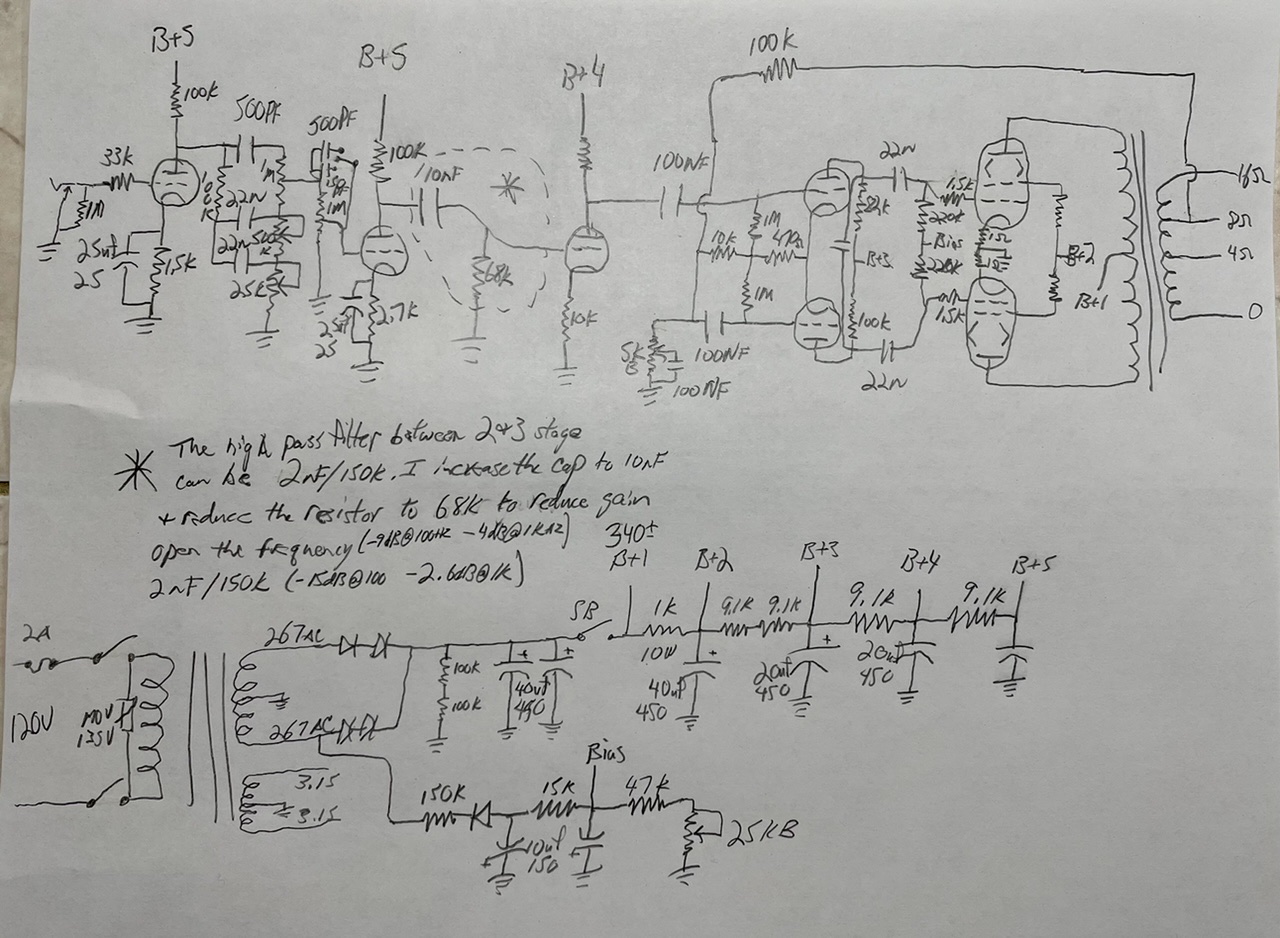 B+5
B+5
B+4
100K
100K
500PF
500PF
33K
1M
1M
1M
100K
25uf
25
1.5K
22n
22n
25K
110nF
2.7K
25
68K
*
10K
100NF
10K
1M
47Ω
1M
5K
B
100NF
100NF
82K
B+3
100K
22n
22n
1.5K
220K
Bias
220K
1.5K
1Ω
1Ω
B+2
B+1
100K
16Ω
8Ω
4Ω
0
* The high pass filter between 2+3 stage
can be 2nF/150K. I increase the cap to 10nF
+ reduce the resistor to 68K to reduce gain
open the frequency (-9dB@100Hz -4dB@1KHz)
2nF/150K (-15dB@100 -2.6dB@1K)
340±
B+1
B+2
B+3
B+4
B+5
SB
1K
10W
9.1K
9.1K
9.1K
9.1K
40uf
450
40uf
450
20uf
450
20uf
450
2A
120V
MOV
135V
267AC
267AC
100K
100K
3.15
3.15
150K
15K
Bias
47K
10uf
150
25KB